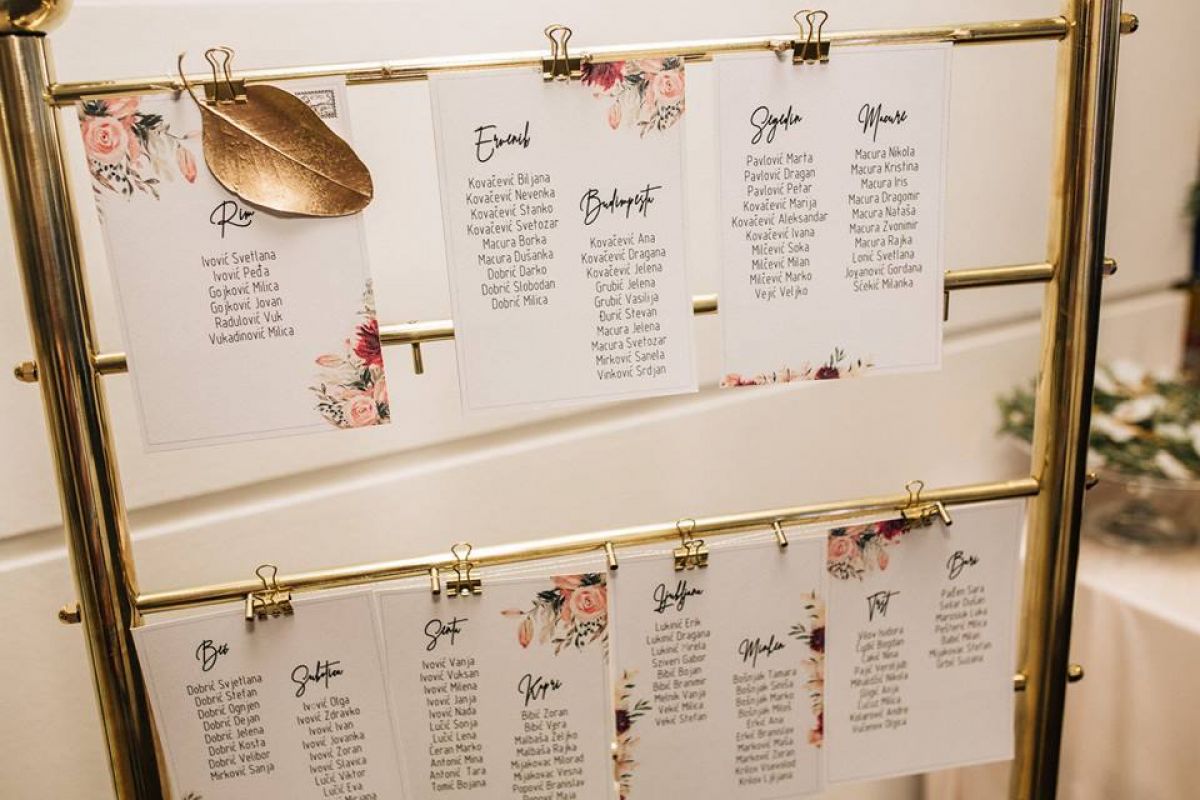 Rim
Ivović Svetlana
Ivović Peđa
Gojković Milica
Gojković Jovan
Radulović Vuk
Vukadinović Milica
Ervenik
Kovačević Biljana
Kovačević Nevenka
Kovačević Stanko
Kovačević Svetozar
Macura Borka
Macura Dušanka
Dobrić Darko
Dobrić Slobodan
Dobrić Milica
Budimpešta
Kovačević Ana
Kovačević Dragana
Kovačević Jelena
Grubić Jelena
Grubić Vasilija
Đurić Stevan
Macura Jelena
Macura Svetozar
Mirković Sanela
Vinković Srdjan
Segedin
Pavlović Marta
Pavlović Dragan
Pavlović Petar
Kovačević Marija
Kovačević Aleksandar
Kovačević Ivana
Milčević Soka
Milčević Milan
Milčević Marko
Vejić Veljko
Macure
Macura Nikola
Macura Kristina
Macura Iris
Macura Dragomir
Macura Nataša
Macura Zvonimir
Macura Rajka
Lonić Svetlana
Jovanović Gordana
Šćekić Milanka
Beč
Dobrić Svjetlana
Dobrić Stefan
Dobrić Ognjen
Dobrić Dejan
Dobrić Jelena
Dobrić Kosta
Dobrić Velibor
Mirković Sanja
Subotica
Ivović Olga
Ivović Zdravko
Ivović Ivan
Ivović Jovanka
Ivović Zoran
Ivović Slavica
Lučić Viktor
Lučić Eva
Senta
Ivović Vanja
Ivović Vuksan
Ivović Milena
Ivović Janja
Ivović Nada
Lučić Sonja
Lučić Lena
Ćeran Marko
Antonić Mina
Antonić Tara
Tomić Bojana
Kapri
Bibić Zoran
Bibić Vera
Malbaša Željko
Malbaša Rajka
Mijakovac Milorad
Mijakovac Vesna
Popović Branislav
Popović Maja
Ljubljana
Lukinić Erik
Lukinić Dragana
Lukinić Mirela
Sziven Gabor
Bibić Bojan
Bibić Branimir
Melnik Vanja
Vekić Milica
Vekić Stefan
Minhen
Bošnjak Tamara
Bošnjak Siniša
Bošnjak Marko
Bošnjak Miloš
Erkić Ana
Erkić Branislav
Marković Maša
Marković Zoran
Krilov Vsevolod
Krilov Ljiljana
Trst
Vilov Isidora
Ljubić Bogdan
Cakić Nina
Mihaldžić Nikola
Jligić Anja
Ćućuz Milica
Kolarović Andre
Vučenović Olgica
Bari
Pađen Sara
Sekar Dušan
Marcisiuk Luka
Pešterić Milica
Babić Milan
Mijakovac Stefan
Grbić Suzana